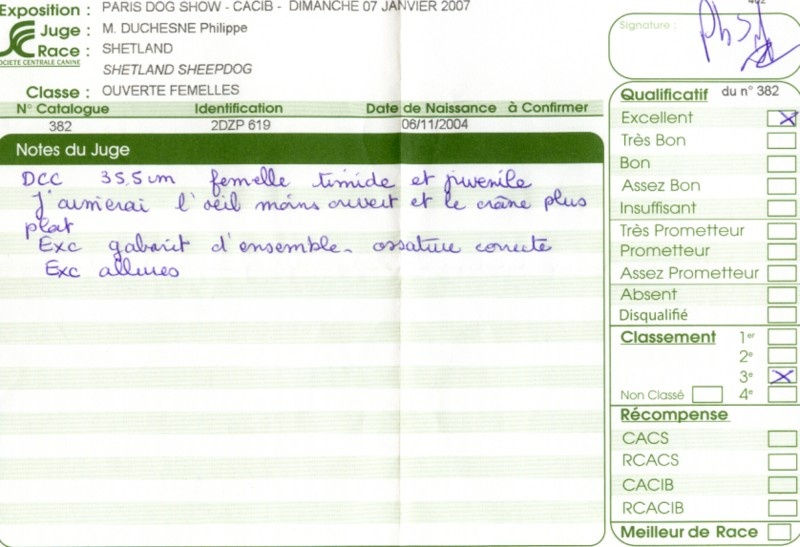 Exposition : PARIS DOG SHOW - CACIB - DIMANCHE 07 JANVIER 2007
Juge : M. DUCHESNE Philippe
Race : SHETLAND
SOCIETE CENTRALE CANINE
SHETLAND SHEEPDOG
Classe : OUVERTE FEMELLES
N° Catalogue Identification Date de Naissance à Confirmer
382 2DZP 619 06/11/2004
Notes du Juge
DCC 35,5 cm femelle timide et juvenile
J'aimerai l'oeil moins ouvert et le crâne plus
plat
Exc gabarit d'ensemble. ossature correcte
Exc allures
Signature :
Qualificatif du n° 382
Excellent X
Très Bon
Bon
Assez Bon
Insuffisant
Très Prometteur
Prometteur
Assez Prometteur
Absent
Disqualifié
Classement 1er
2e
3e X
Non Classé 4e
Récompense
CACS
RCACS
CACIB
RCACIB
Meilleur de Race